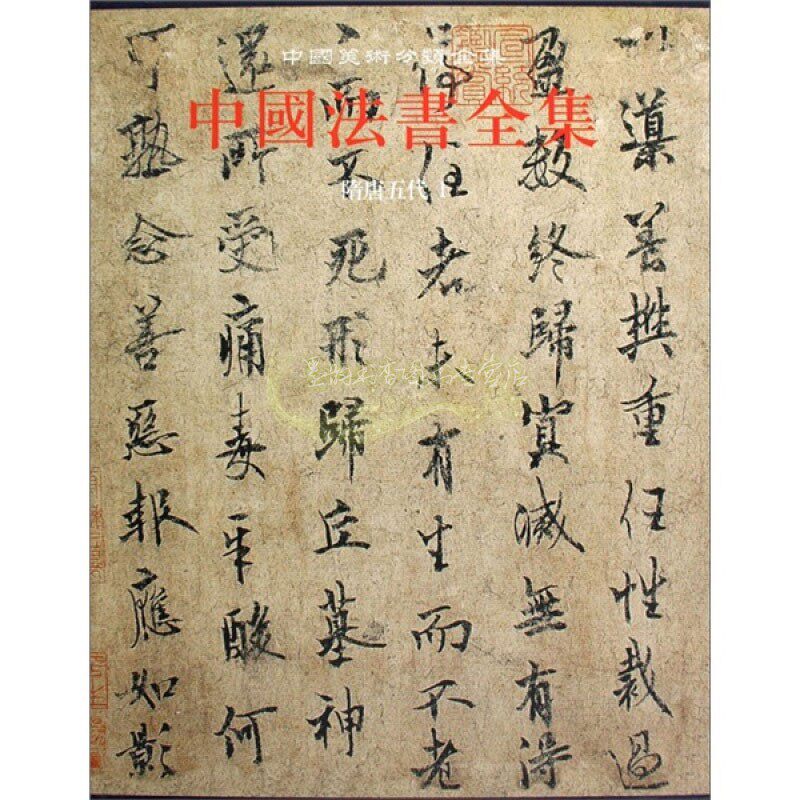 中國美術分類全集
中國法書全集
隋唐五代 1
以導養樊重任性裁過
盈數終歸冥滅無有得
停住者未有生而不老
〻而不死形歸丘墓神
還所受痛毒辛酸何
可熟念善惡報應如影